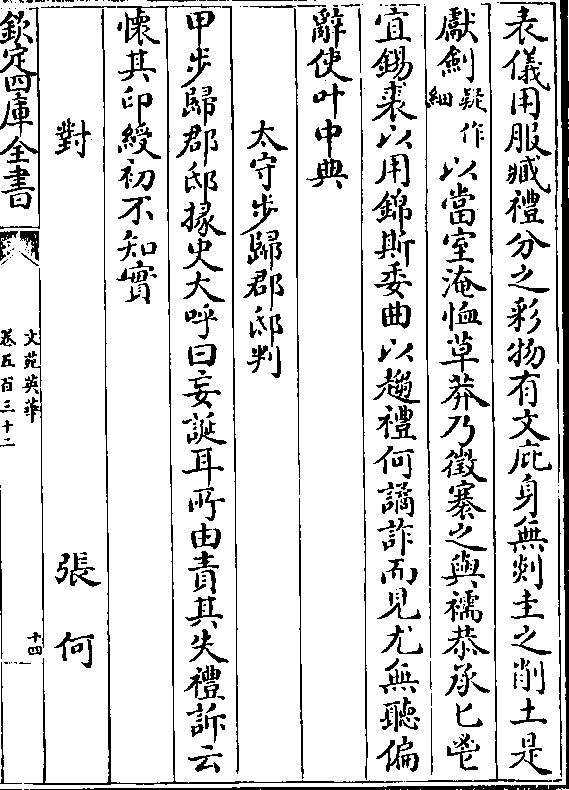 表儀用服臧禮分之彩物有文庇身無剡圭之削土是
獻劍疑作細以當室淹恤草莽乃徵褰之與襦恭承匕鬯
宜錫裘以用錦斯委曲以趨禮何譎詐而見尤無聽偏
辭使叶中典
太守步歸郡邸判
甲步歸郡邸掾史大呼曰妄誕耳所由責其失禮訴云
懷其印綬初不知實
對 張何
欽定四庫全書
文苑英華
卷五百三十二
十四